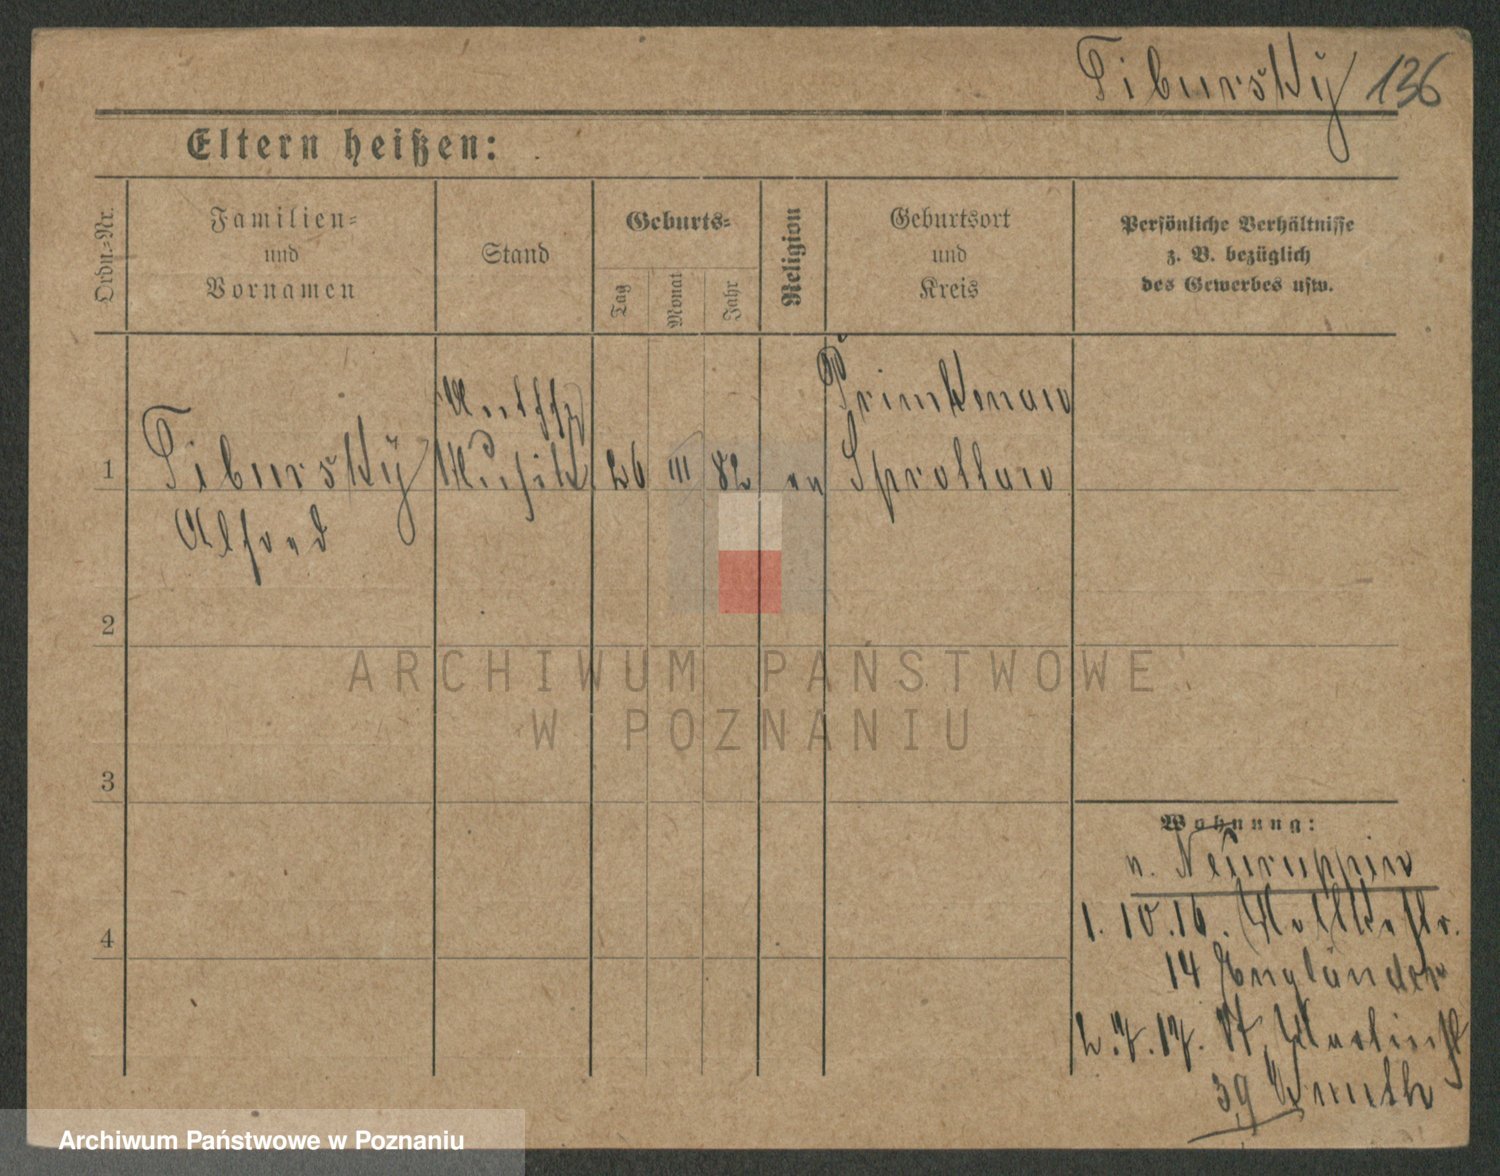 Tibursky 136
Eltern heißen:
Ordn.-Nr.
Familien-
und
Vornamen
Stand
Geburts-
Tag
Monat
Jahr
Religion
Geburtsort
und
Kreis
Persönliche Verhältnisse
z. B. bezüglich
des Gewerbes usw.
1
Tibursky
Alfred
Musik
26 III 82 ev
Primkenau
Sprottau
2
3
4
Wohnung:
v. Neuruppin
1.10.16. Moltkestr.
14 Engländer
2.7.17.
39
ARCHIWUM PAŃSTWOWE
W POZNANIU
Archiwum Państwowe w Poznaniu